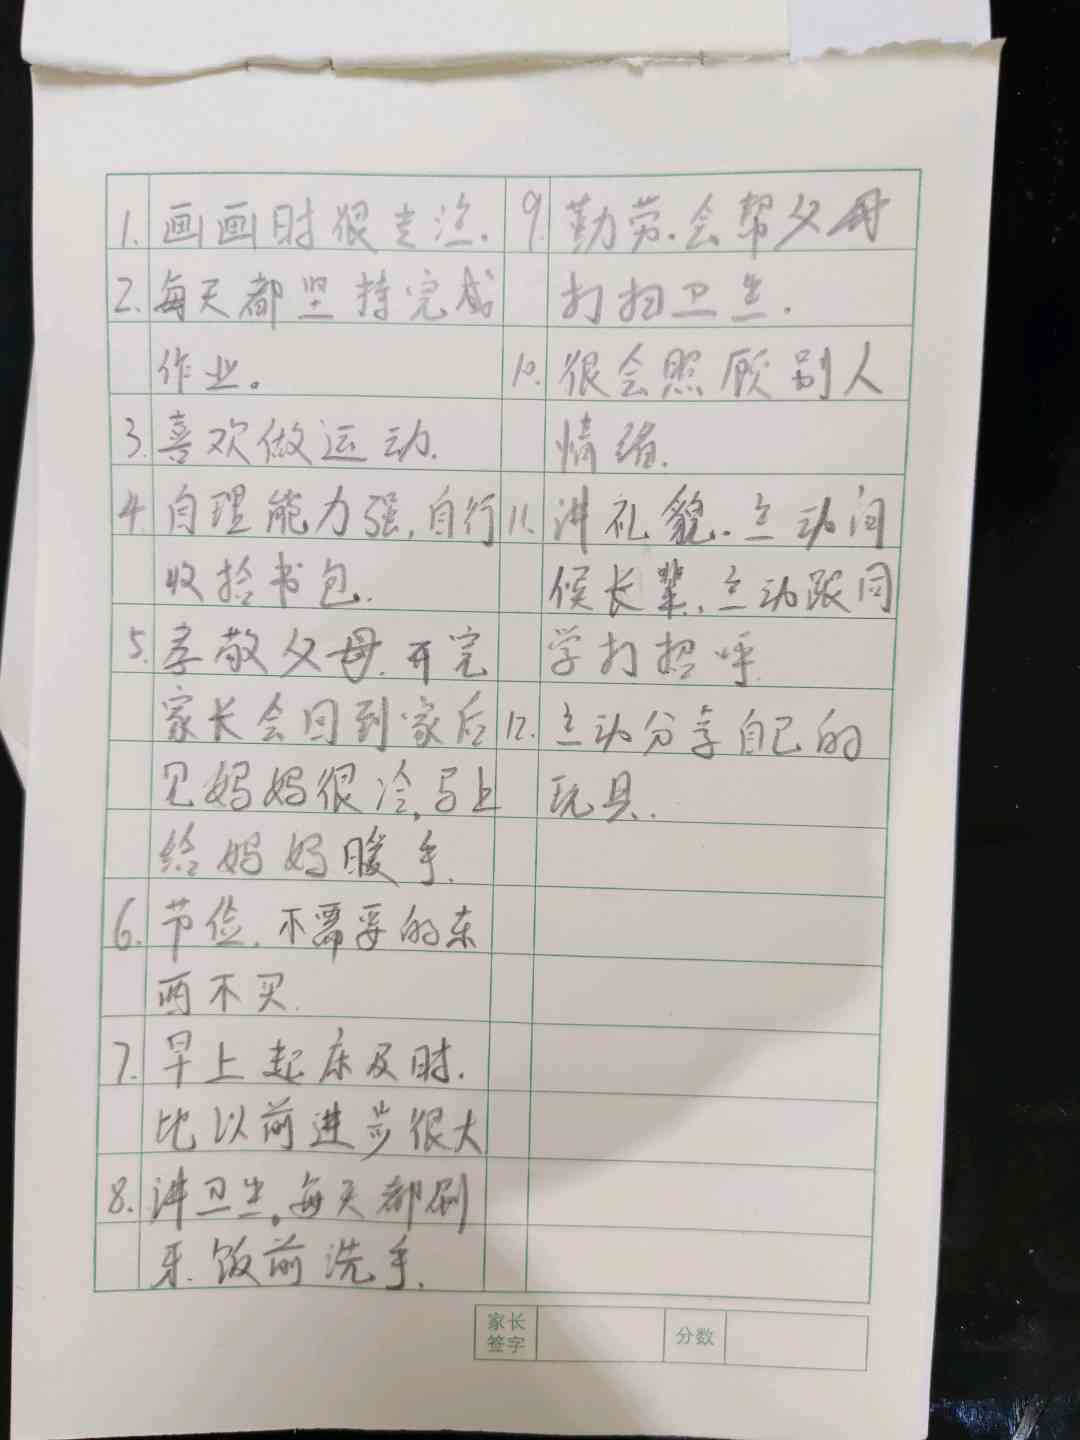 1. 画画时很专注.
2. 每天都坚持完成
作业。
3. 喜欢做运动.
4. 自理能力强,自行
收拾书包.
5. 孝敬父母.开完
家长会回到家后
见妈妈很冷,马上
给妈妈暖手.
6. 节俭.不需要的东
西不买.
7. 早上起床及时.
比以前进步很大
8. 讲卫生,每天都刷
牙.饭前洗手.
9. 勤劳.会帮父母
打扫卫生.
10. 很会照顾别人
情绪.
11. 讲礼貌.主动问
候长辈,主动跟同
学打招呼.
12. 主动分享自己的
玩具.
家长
签字
分数